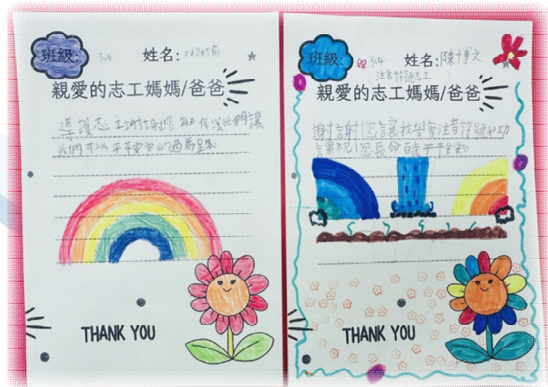 班級: 304 姓名:
親愛的志工媽媽/爸爸
導護志工謝謝您每天保護我們讓
我們可以平平安安的過馬路
THANK YOU
班級: 304 姓名: 陳博文
注音符號志工
親愛的志工媽媽/爸爸
謝謝您讓我學會注音符號和功
課祝您長命百歲平平安安
THANK YOU